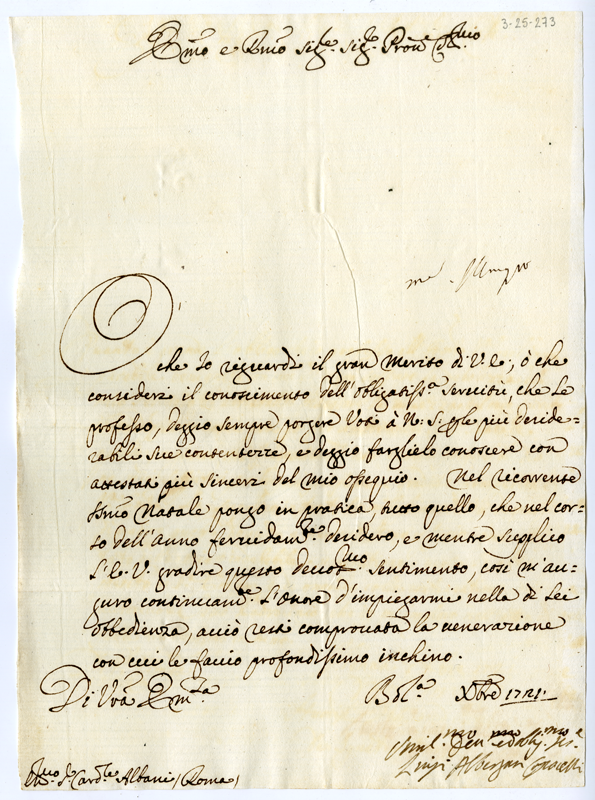 3-25-273
Em͞o e Rm͞o Sig.re Sig.re Pron͞e
O che io riguardi il gran merito di V. E., ò che
consideri il conoscimento dell'obligatiss.a servitù, che Le
professo, deggio sempre porgere Voti à N: S. p le più deside=
rabili sue contentezze, e deggio farglielo conoscere con
attestati più sinceri del mio ossequio. Nel ricorrente
SSm͞o Natale pongo in pratica tutto quello, che nel cor=
so dell'anno fervidam.te desidero, e mentre supplico
l'E. V. gradire questo devot.mo sentimento, così m'au=
guro continuam.te l'onore d'impiegarmi nella di Lei
obbedienza, acciò resti comprovata la venerazione
con cui le faccio profondissimo inchino.
Di Vr͞a Em.za Bol.a Xbre 1721.
Umil.mo Dev.mo ed obblig.mo
Luigi
S. Card.le Albani (Roma)